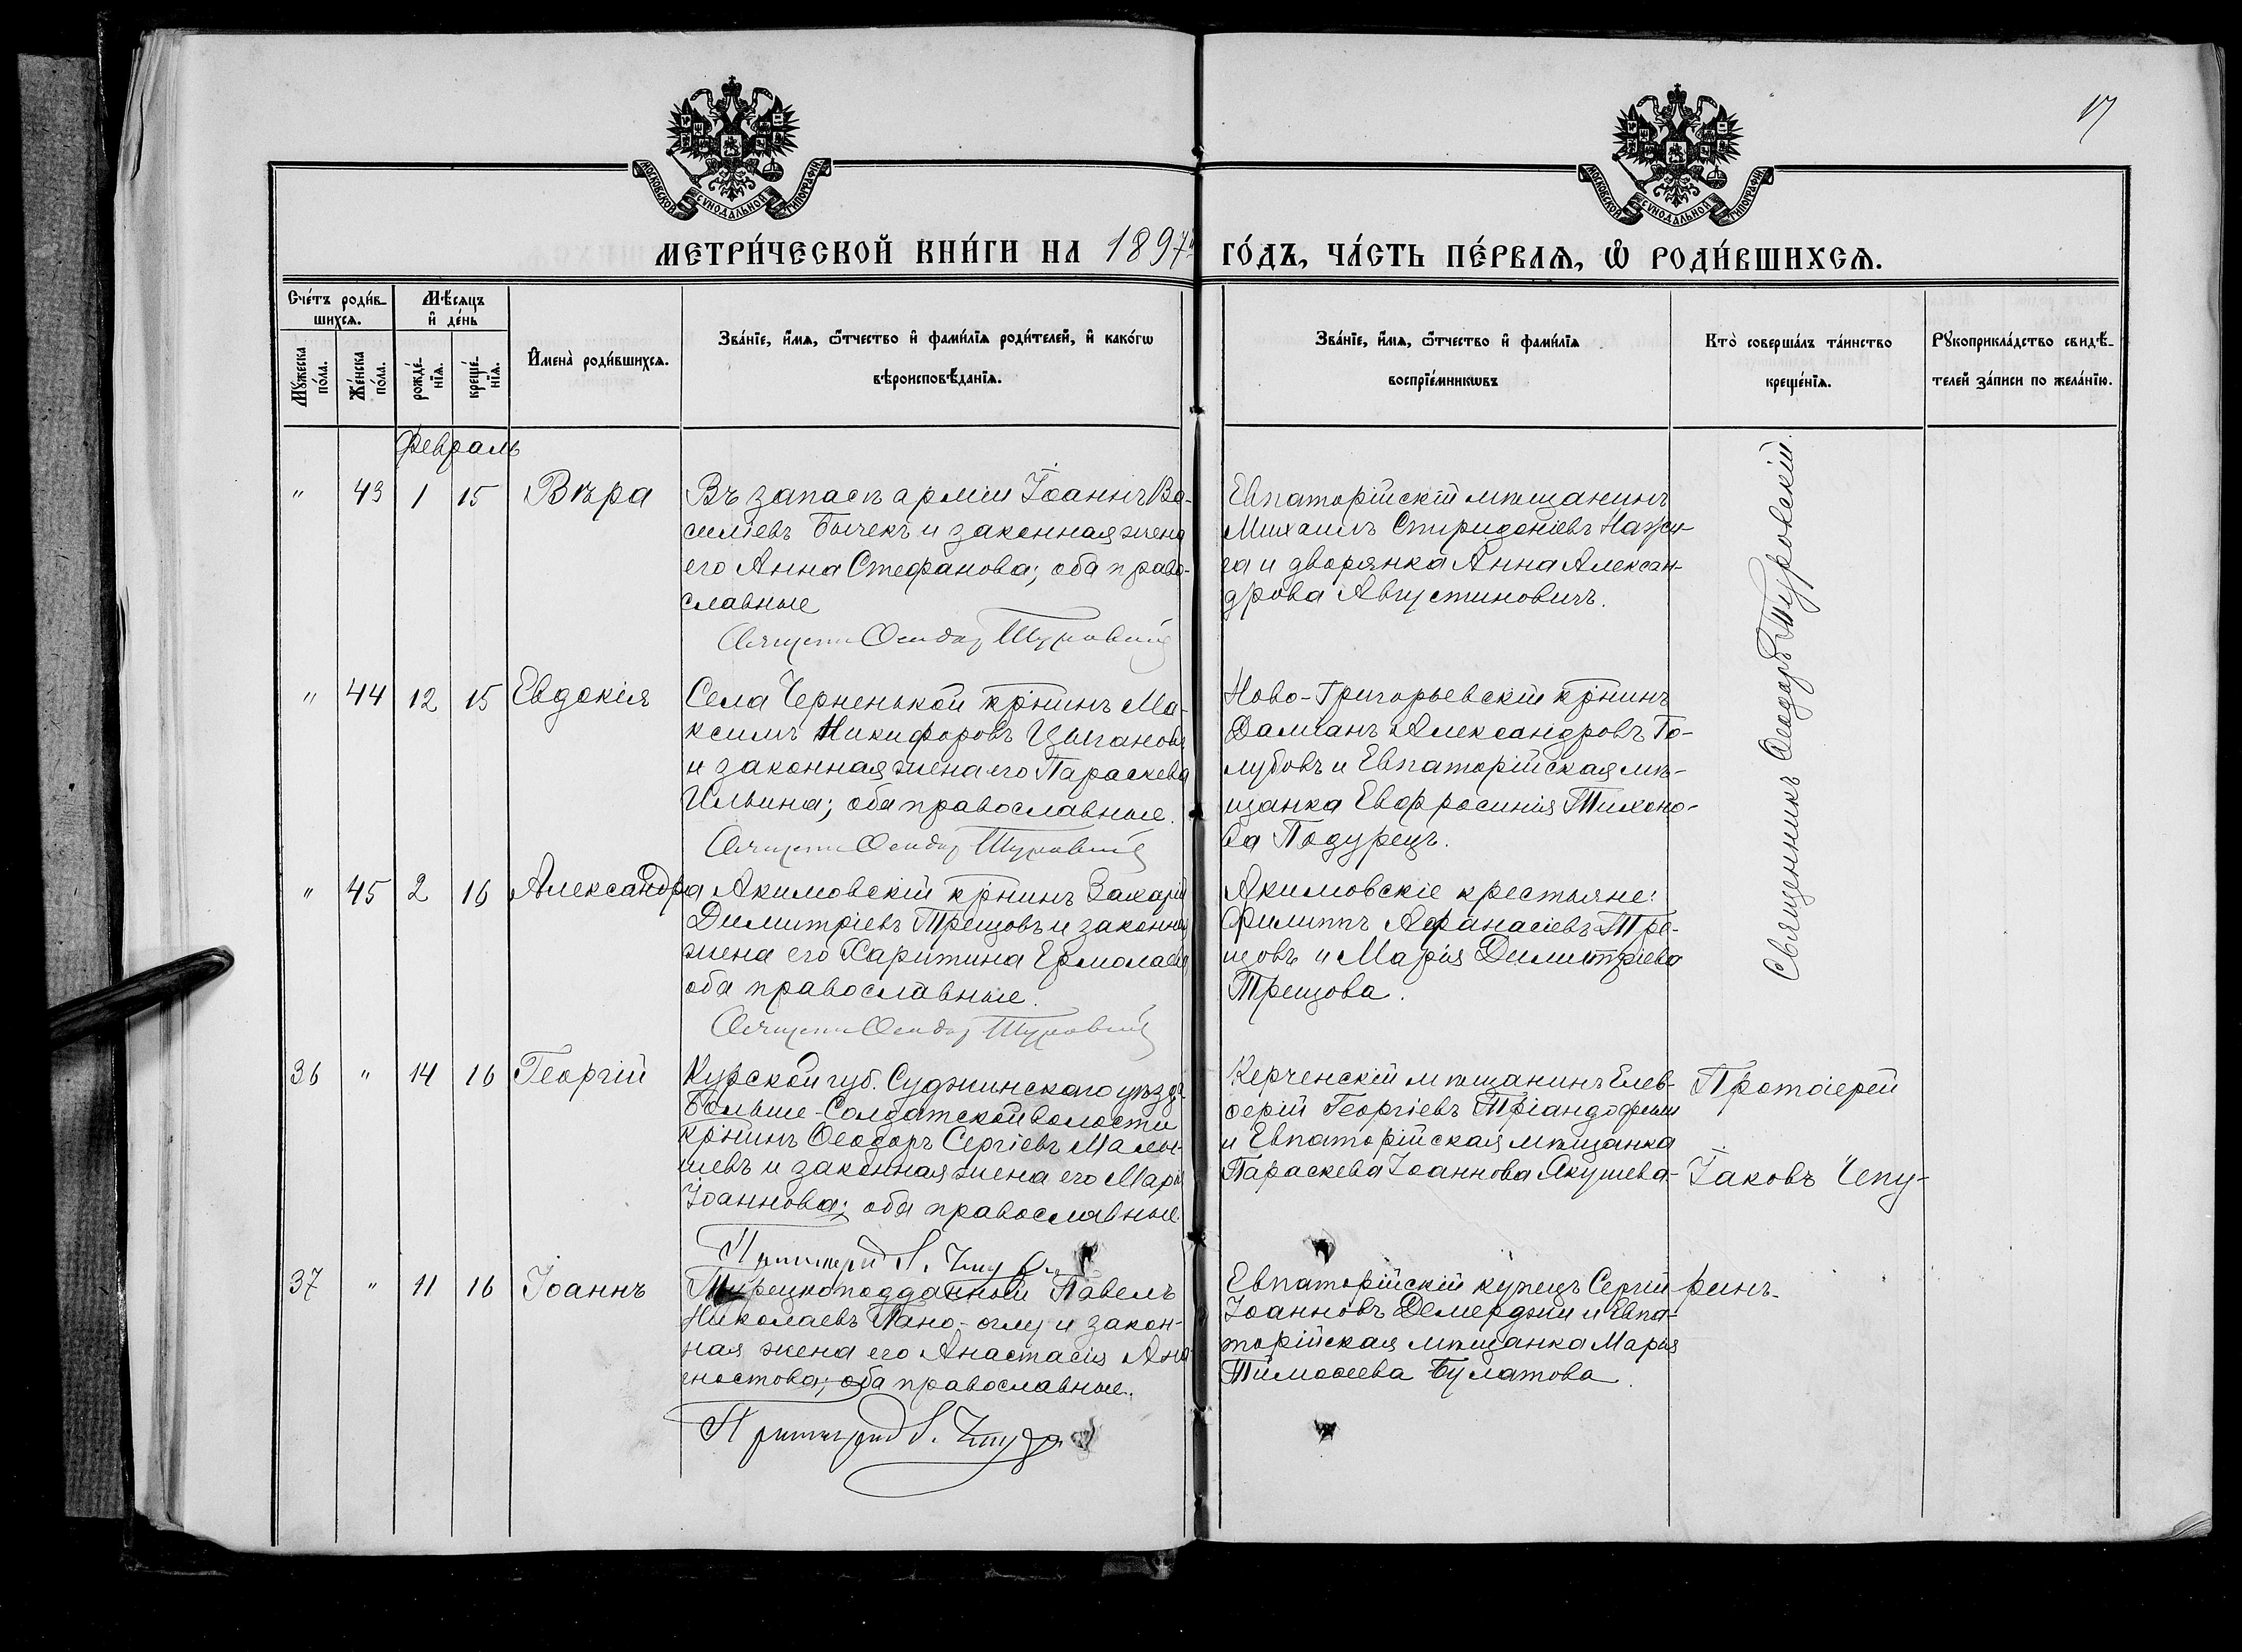 17
МОСКОВСКОЙ СѴНОДАЛЬНОЙ ТИПОГРАФІИ
МОСКОВСКОЙ СѴНОДАЛЬНОЙ ТИПОГРАФІИ
МЕТРИ́ЧЕСКОЙ КНИ́ГИ НА 1897й ГО́ДЪ, ЧА́СТЬ ПЕ́РВАѦ, Ѽ РОДИ́ВШИХСѦ.
Сче́тъ роди́в-
шихсѧ.
Мꙋ́жеска
по́ла.
Же́нска
по́ла.
Мѣ́сѧцъ
и҆ де́нь
рожде́-
нїѧ.
креще́-
нїѧ.
И҆мена̀ роди́вшихсѧ.
Зва́нїе, и҆́мѧ, ѻ҆́тчество и҆ фами́лїѧ роди́телей, и҆ како́гѡ
вѣроисповѣ́данїѧ.
Зва́нїе, и҆́мѧ, ѻ҆́тчество и҆ фами́лїѧ
воспрїе́мникѡвъ
Кто̀ соверша́лъ та́инство
креще́нїѧ.
Рꙋкоприкла́дство свидѣ́-
телей за́писи по жела́нїю.
Февраль
" 43 1 15 Вѣра
Въ запасѣ арміи Іоаннъ Ва-
силіевъ Бычекъ и законная жена
его Анна Стефанова; оба право-
славные
Священ. Ѳеодор Туровскій
Евпаторійскій мѣщанинъ
Михаилъ Спиридоніевъ Нажи-
га и дворянка Анна Алексан-
дрова Августиновичъ.
Священникъ Ѳеодоръ Туровскій.
" 44 12 15 Евдокія
Села Черненькой кр̄нинъ Ма-
ксимъ Никифоровъ Цыгановъ
и законная жена его Параскева
Ильина; оба православные.
Священ. Ѳеодор Туровскій
Ново-Григорьевскій кр̄нинъ
Даміанъ Александровъ Го-
лубовъ и Евпаторійская мѣ-
щанка Евфросинія Тихоно-
ва Подурецъ.
" 45 2 16 Александра
Акимовскій кр̄нинъ Захарій
Димитріевъ Трещовъ и законная
жена его Харитина Ермолаева
оба православные.
Священ. Ѳеодор Туровскій
Акимовскіе крестьяне:
Филиппъ Аѳанасіевъ Тре-
щовъ и Марія Димитріева
Трещова.
36 " 14 16 Георгій
Курской губ. Суджинскаго уѣзда
Больше-Солдатской волости
кр̄нинъ Ѳеодоръ Сергіевъ Малы-
шевъ и законная жена его Марія
Іоаннова; оба православные.
Протоіерей І. Чепурин
Керченскій мѣщанинъ Елев-
ѳерій Георгіевъ Тріандофили
и Евпаторійская мѣщанка
Параскева Іоаннова Якушева.
Протоіерей
Іаковъ Чепу-
ринъ.
37 " 11 16 Іоаннъ
Турецкоподданный Павелъ
Николаевъ Пано-оглу и закон-
ная жена его Анастасія Ана-
гностова; оба православные.
Протоіерей І. Чепурин
Евпаторійскій купецъ Сергій
Іоанновъ Демерджи и Евпа-
торійская мѣщанка Марія
Тимоѳеева Булатова.